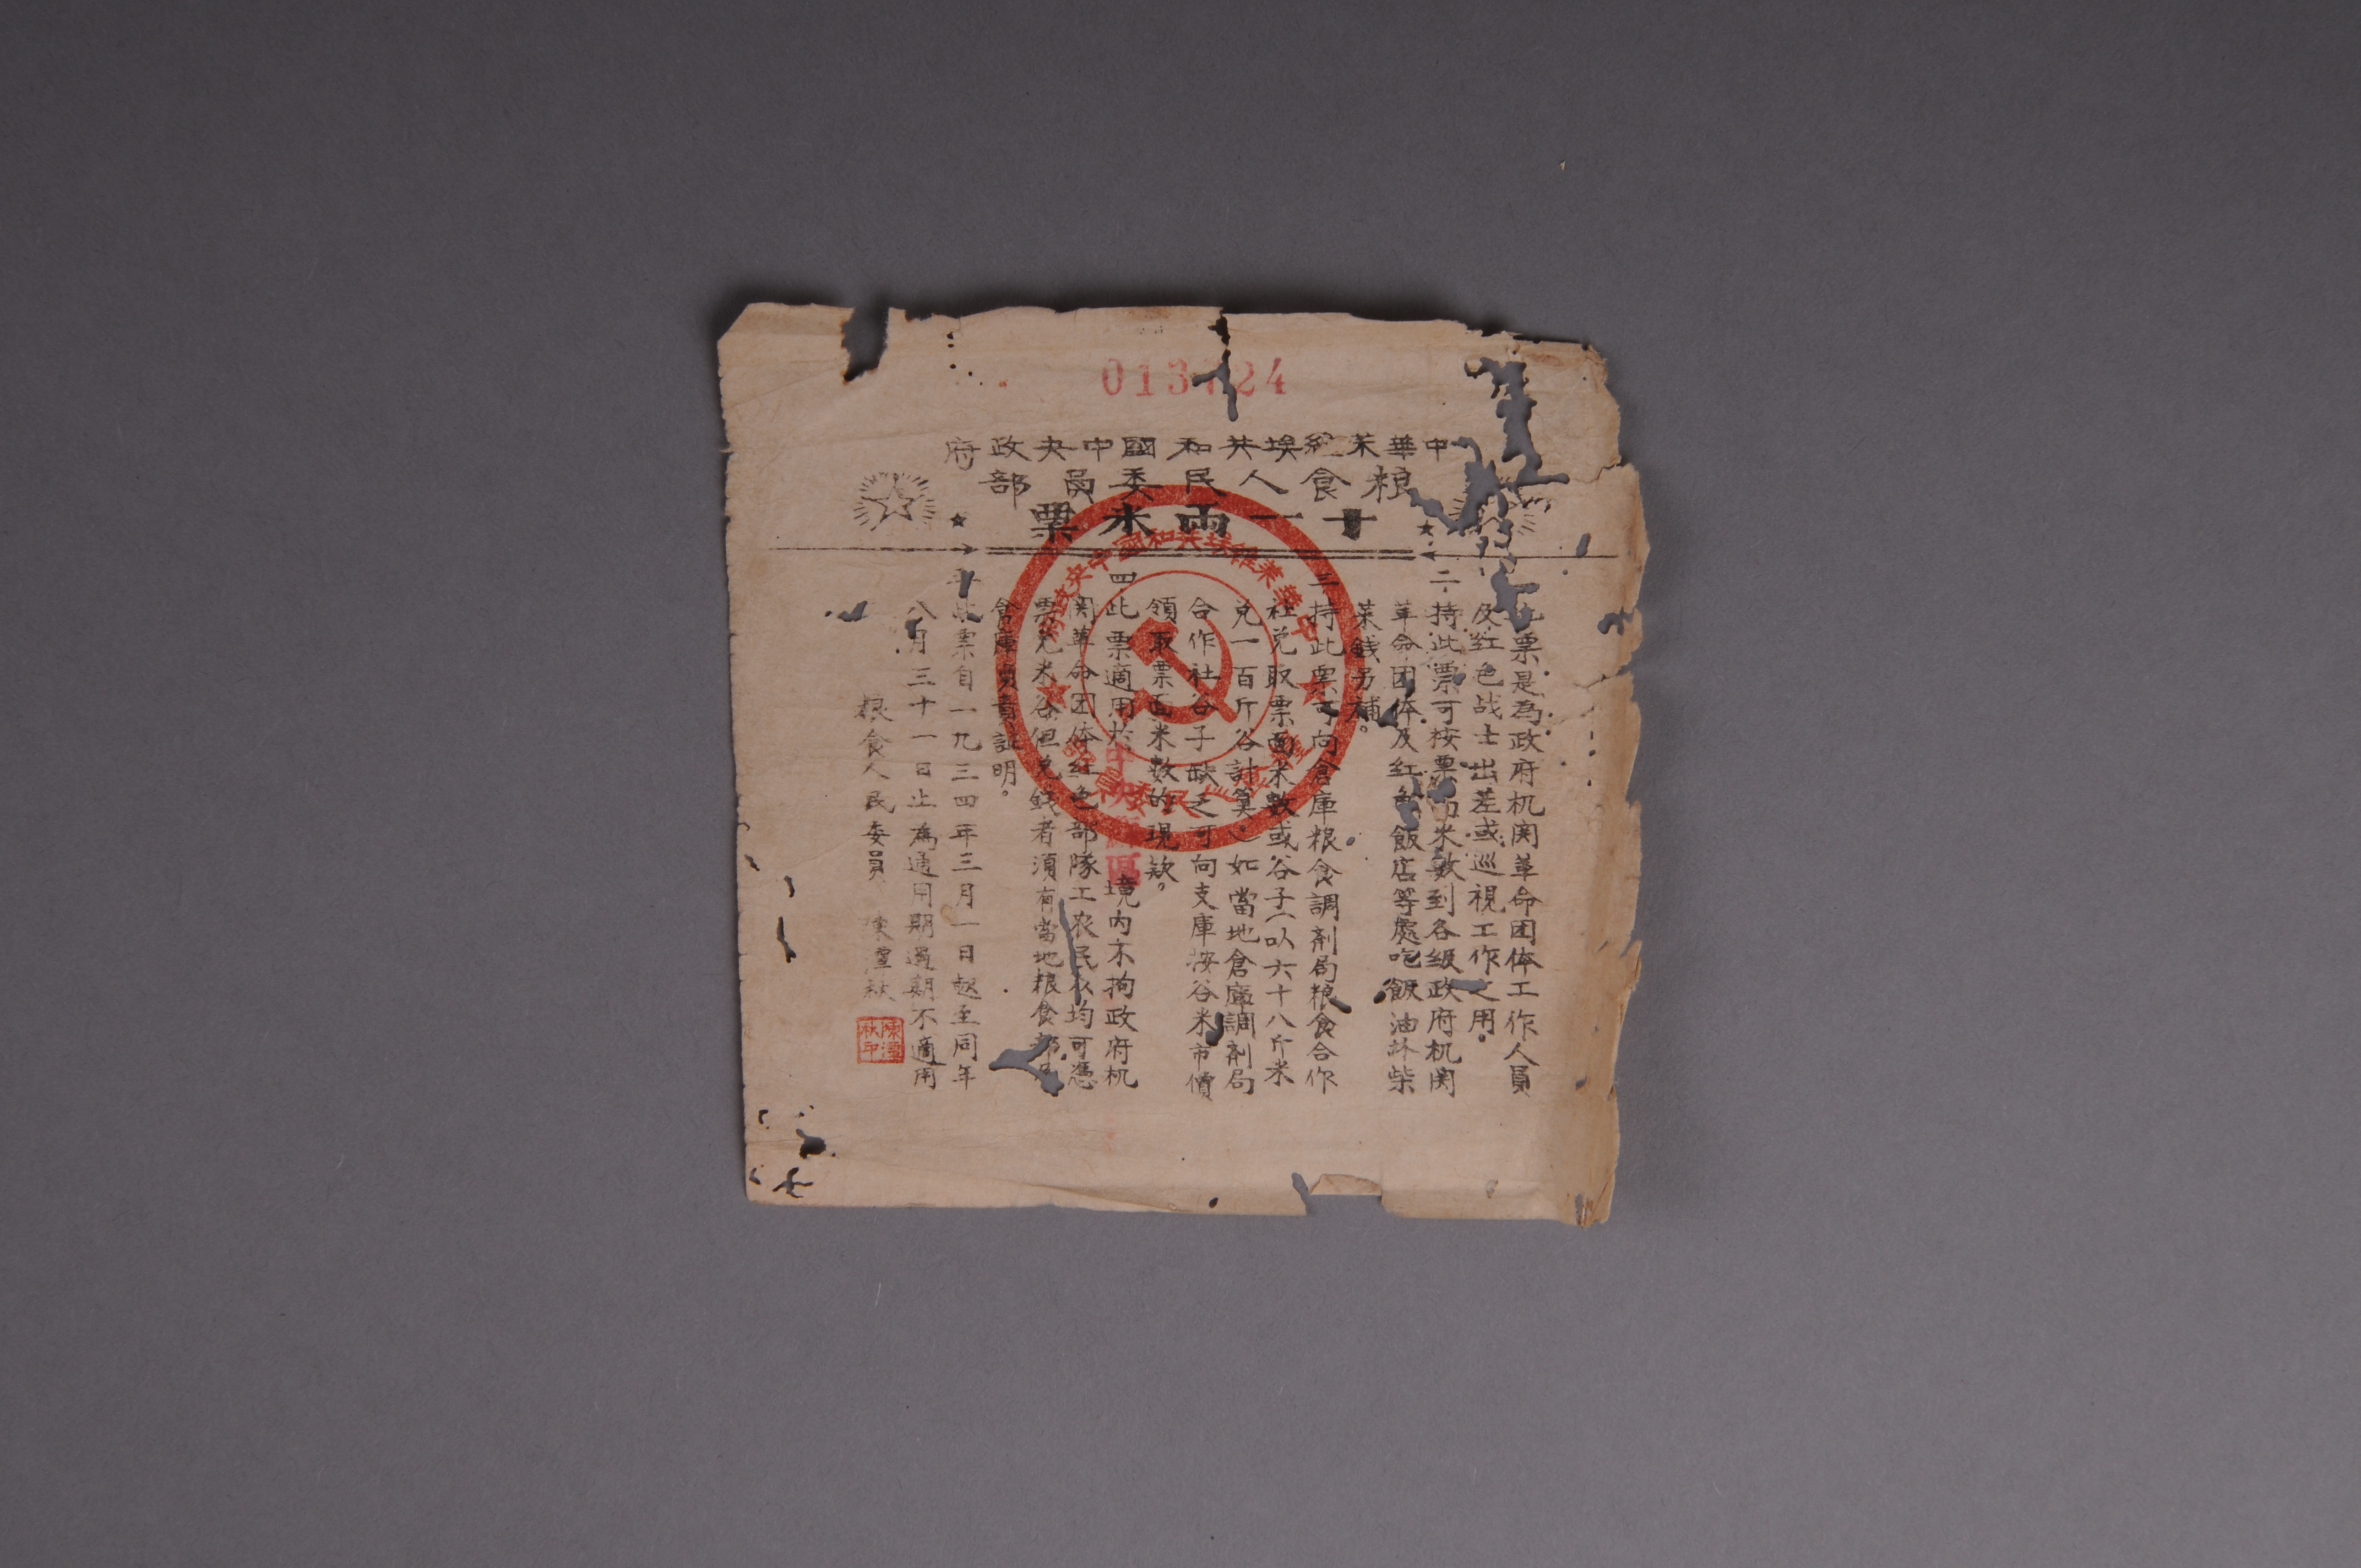 013 24
中華苏維埃共和國中央政府
粮食人民委員部
十一兩米票
票是為政府机関革命团体工作人員
及红色战士出差或巡視工作之用。
二、持此票可按票面米数到各級政府机関
革命团体及红色飯店等處吃飯油盐柴
菜錢另補。
三、持此票可向倉庫粮食調剂局粮食合作
社兑取票面米數或谷子(以六十八斤米
兑一百斤谷計算)如當地倉庫調剂局
合作社谷子缺乏可向支庫按谷米市價
領取票面米数的現款。
四、此票適用於中央苏區境内不拘政府机
関革命团体红色部隊工农民众均可憑
票兑米谷但兑錢者須有當地粮食部
倉庫負責証明。
此票自一九三四年三月一日起至同年
八月三十一日止為通用期過期不適用
粮食人民委員 陳潭秋
陳潭秋印
中華蘇維埃共和國中央政府
粮食人民委員部